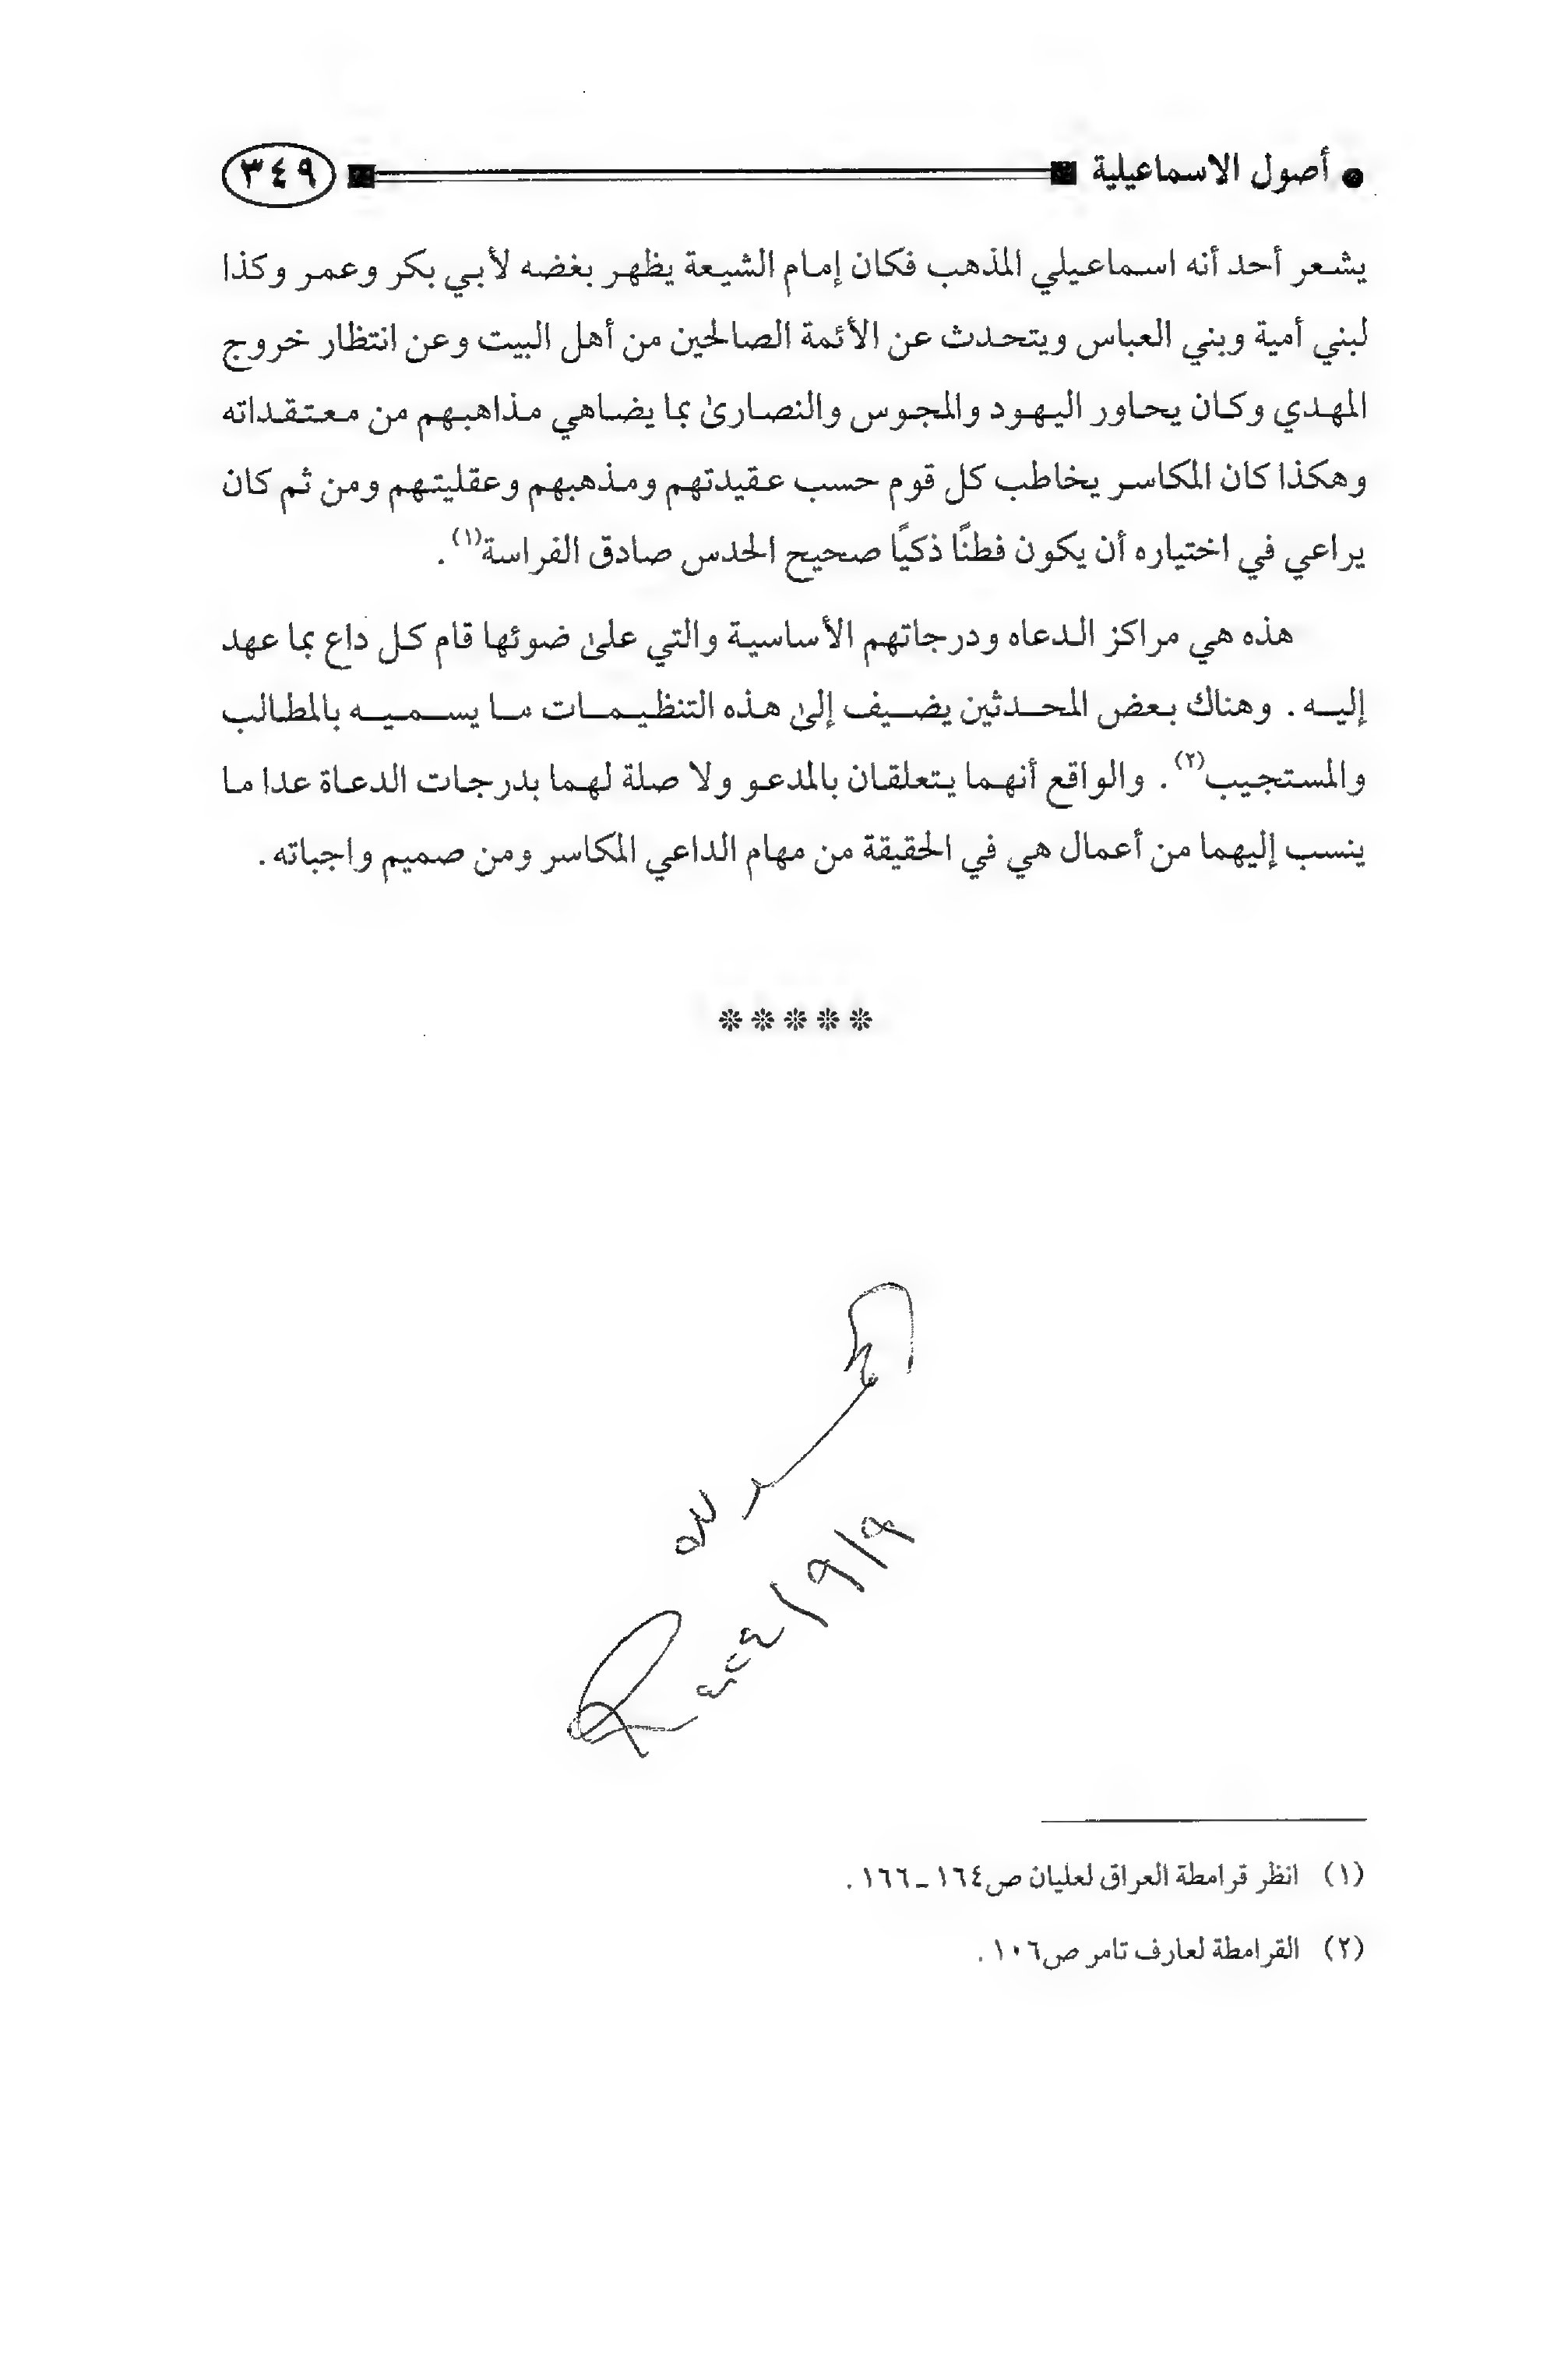 • أصول الاسماعيلية ٣٤٩
يشعر أحد أنه اسماعيلي المذهب فكان إمام الشيعة يظهر بغضه لأبي بكر وعمر وكذا
لبني أمية وبني العباس ويتحدث عن الأئمة الصالحين من أهل البيت وعن انتظار خروج
المهدي وكان يحاور اليهود والمجوس والنصارىٰ بما يضاهي مذاهبهم من معتقداته
وهكذا كان المكاسر يخاطب كل قوم حسب عقيدتهم ومذهبهم وعقليتهم ومن ثم كان
يراعي في اختياره أن يكون فطنًا ذكيًا صحيح الحدس صادق الفراسة(١) .
هذه هي مراكز الدعاه ودرجاتهم الأساسية والتي علىٰ ضوئها قام كل داع بما عهد
إليه . وهناك بعض المحدثين يضيف إلىٰ هذه التنظيمات ما يسميه بالمطالب
والمستجيب(٢) . والواقع أنهما يتعلقان بالمدعو ولا صلة لهما بدرجات الدعاة عدا ما
ينسب إليهما من أعمال هي في الحقيقة من مهام الداعي المكاسر ومن صميم واجباته .
*****
(١) انظر قرامطة العراق لعليان ص١٦٤ ـ ١٦٦ .
(٢) القرامطة لعارف تامر ص١٠٦ .